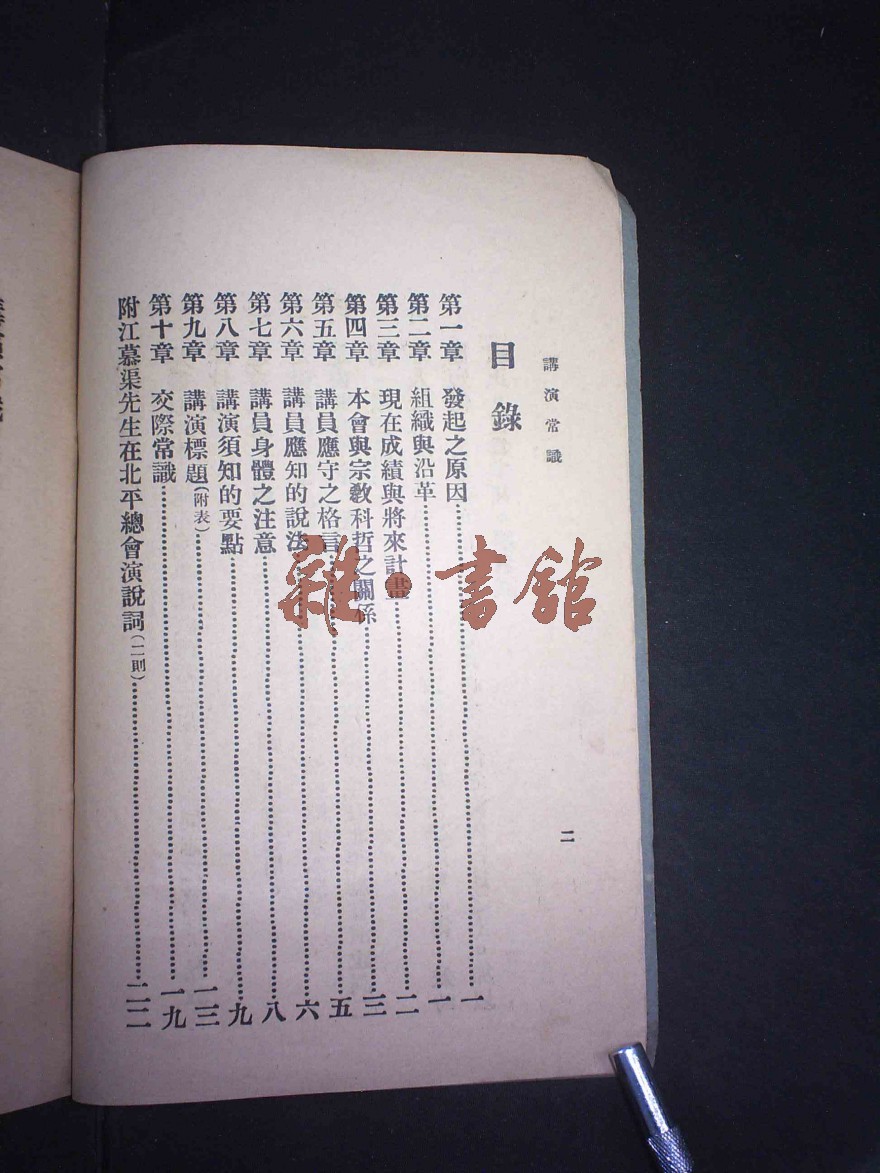 講演常識
二
目錄
第一章 發起之原因…………一
第二章 組織與沿革…………一
第三章 現在成績與將來計畫…………二
第四章 本會與宗敎科哲之關係…………三
第五章 講員應守之格言…………五
第六章 講員應知的說法…………六
第七章 講員身體之注意…………八
第八章 講演須知的要點…………九
第九章 講演標題(附表)…………一三
第十章 交際常識…………一九
附江慕渠先生在北平總會演說詞(二則)…………二二
雜·書館